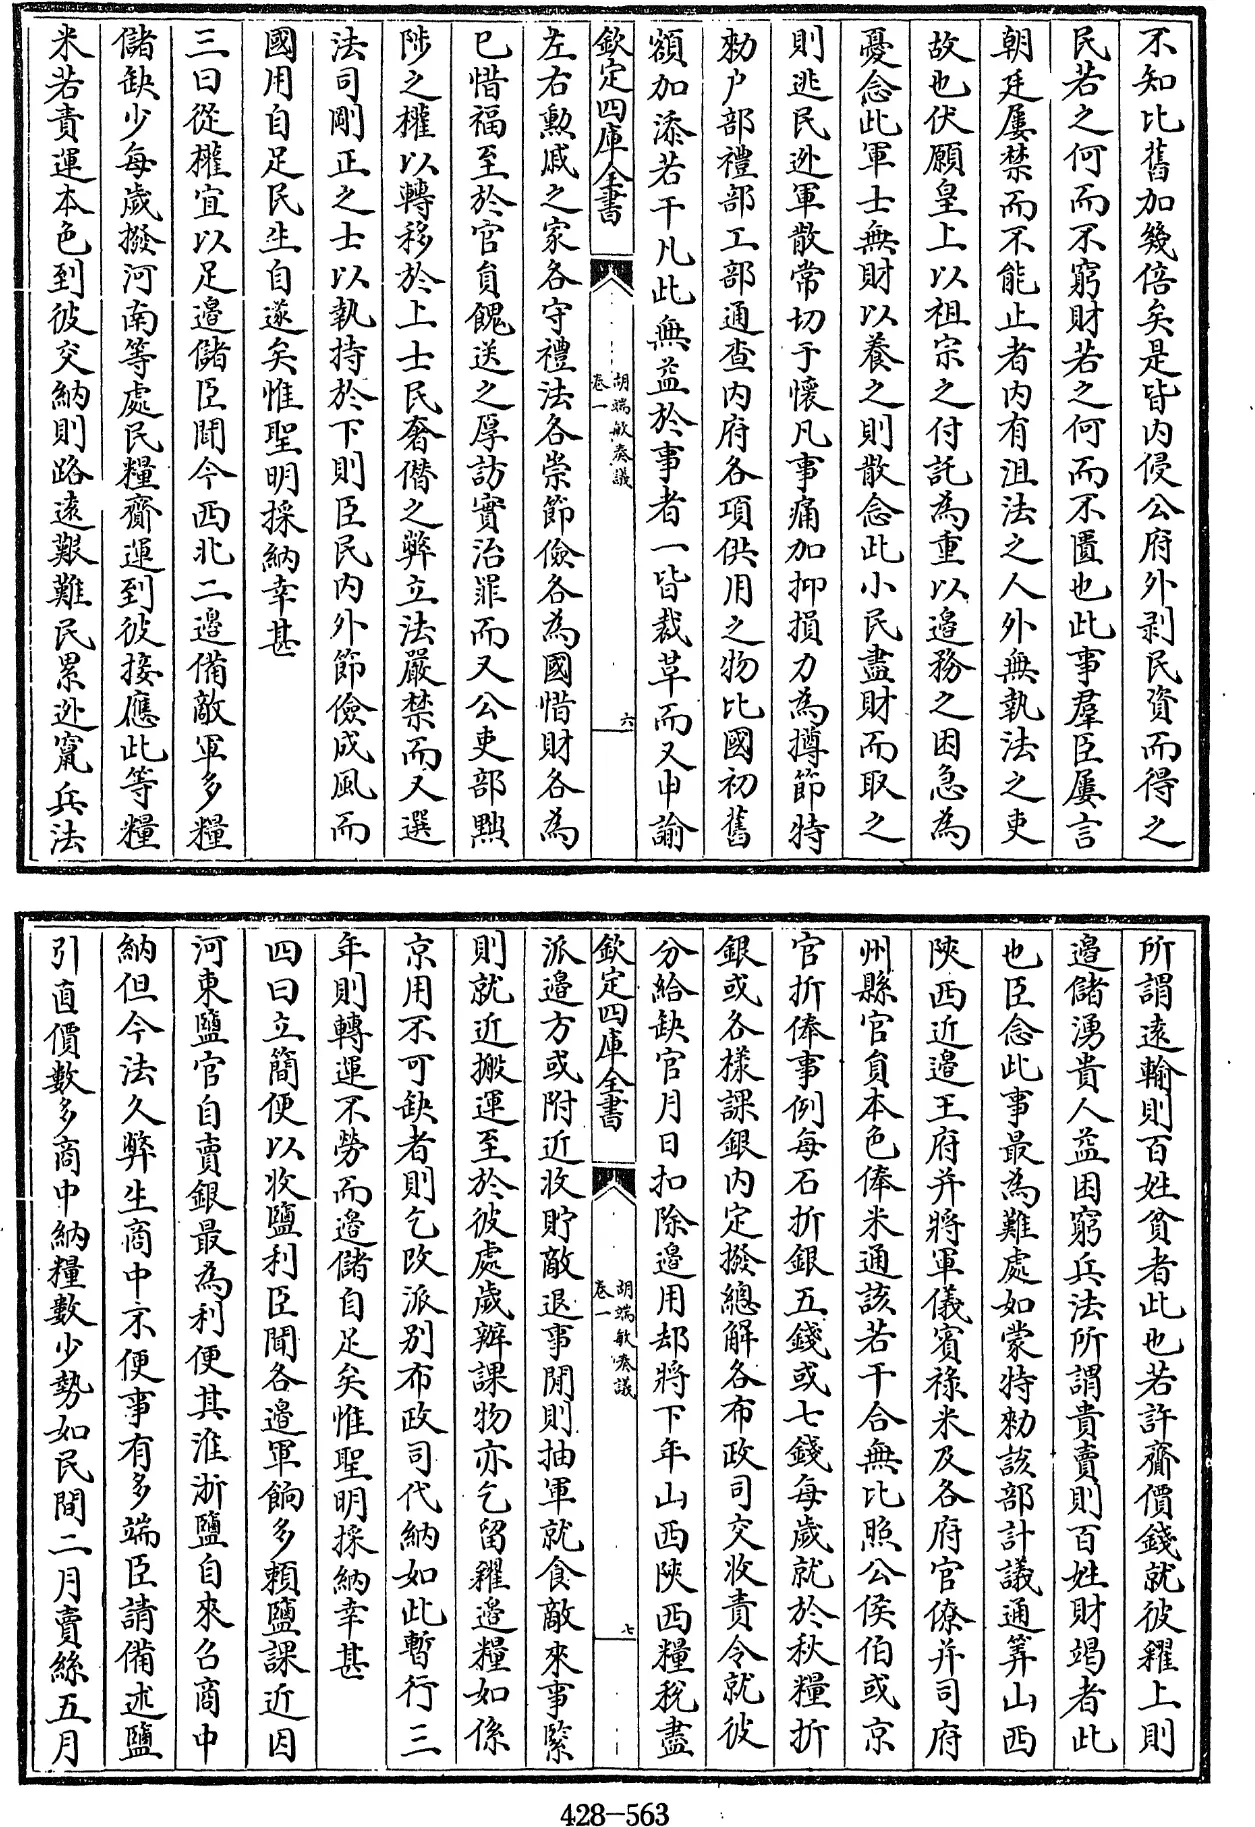 不知比舊加幾倍矣是皆内侵公府外剥民資而得之
民若之何而不窮財若之何而不匱也此事羣臣屢言
朝廷屢禁而不能止者内有沮法之人外無執法之吏
故也伏願皇上以祖宗之付託為重以邉務之困急為
憂念此軍士無財以養之則散念此小民盡財而取之
則逃民迯軍散常切于懷凡事痛加抑損力為撙節特
勅户部禮部工部通查内府各項供用之物比國初舊
額加添若干凡此無益於事者一皆裁革而又申諭
欽定四庫全書
胡端敏奏議
卷一
六
左右勲戚之家各守禮法各崇節儉各為國惜財各為
已惜福至於官員餽送之厚訪實治罪而又公吏部黜
陟之權以轉移於上士民奢僭之弊立法嚴禁而又選
法司剛正之士以執持於下則臣民内外節儉成風而
國用自足民生自遂矣惟聖明採納幸甚
三曰從權宜以足邉儲臣聞今西北二邉備敵軍多糧
儲缺少每歲撥河南等處民糧齎運到彼接應此等糧
米若責運本色到彼交納則路逺艱難民累迯竄兵法
所謂逺輸則百姓貧者此也若許齎價錢就彼糴上則
邉儲湧貴人益困窮兵法所謂貴賣則百姓財竭者此
也臣念此事最為難處如蒙特勅該部計議通筭山西
陝西近邉王府并將軍儀賓祿米及各府官僚并司府
州縣官員本色俸米通該若干合無比照公侯伯或京
官折俸事例每石折銀五錢或七錢每歲就於秋糧折
銀或各様課銀内定撥總解各布政司交收責令就彼
分給缺官月日扣除邉用却將下年山西陝西糧税盡
欽定四庫全書
胡端敏奏議
卷一
七
派邉方或附近收貯敵退事閒則抽軍就食敵來事緊
則就近搬運至於彼處歲辦課物亦乞留糴邉糧如係
京用不可缺者則乞改派别布政司代納如此暫行三
年則轉運不勞而邉儲自足矣惟聖明採納幸甚
四曰立簡便以收鹽利臣聞各邉軍餉多賴鹽課近因
河東鹽官自賣銀最為利便其淮浙鹽自來召商中
納但今法久弊生商中不便事有多端臣請備述鹽
引直價數多商中納糧數少勢如民間二月賣絲五月
428-563